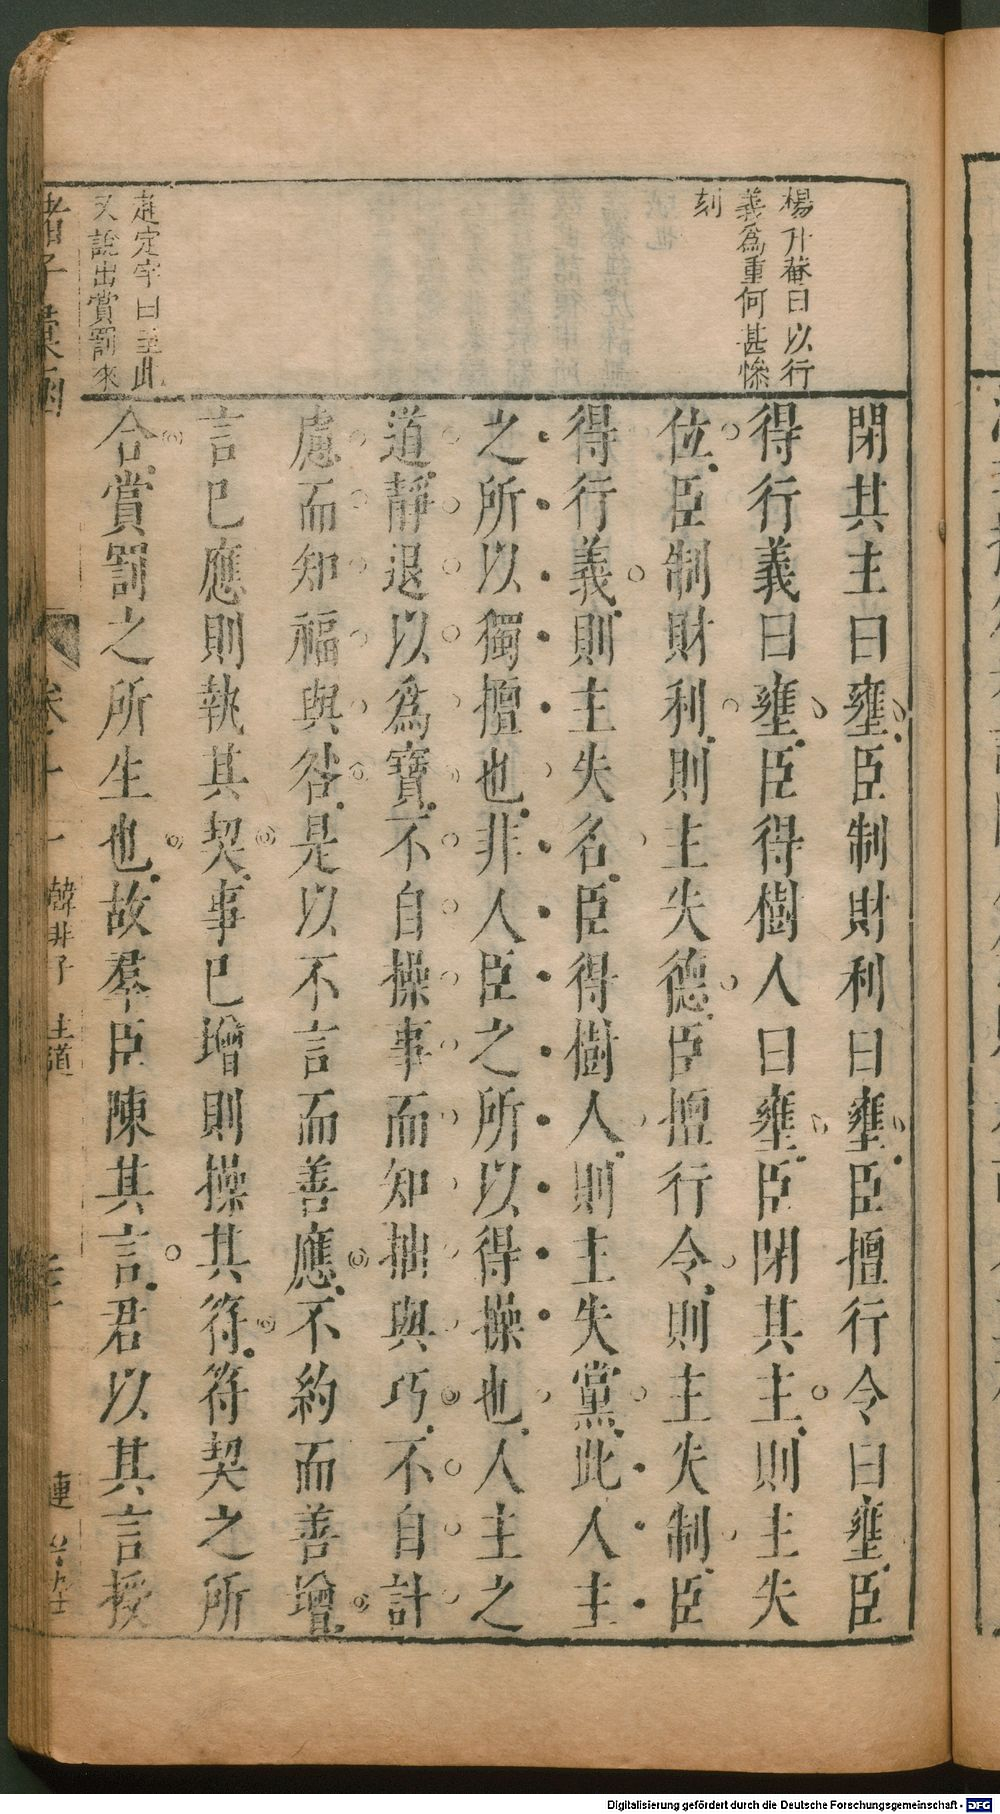 楊升菴曰以行
義爲重何甚慘
刻
閉其主曰壅臣制財利曰壅臣擅行令曰壅臣
得行義曰壅臣得樹人曰壅臣閉其主則主失
位臣制財利則主失德臣擅行令則主失制臣
得行義則主失名臣得樹人則主失黨此人主
之所以獨擅也非人臣之所以得操也人主之
道靜退以爲寶不自操事而知拙與巧不自計
慮而知福與咎是以不言而善應不約而善增
言已應則執其契事已增則操其符符契之所
合賞罰之所生也故羣臣陳其言君以其言授
定宇曰至此
又說出賞罰來
諸子彙函
卷十一
韓非子 主道
Digitalisierung gefördert durch die Deutsche Forschungsgemeinschaft - DFG